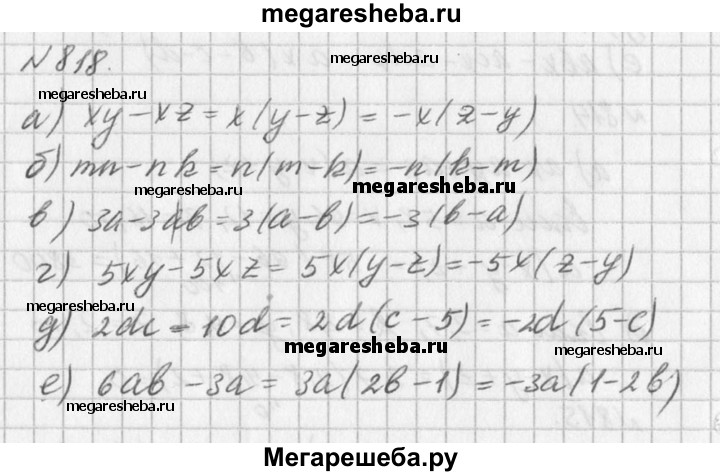 megaresheba.ru
N 818.
megaresheba.ru
megaresheba.ru
а) xy - xz = x(y-z) = -x(z-y)
б) mn - nk = n(m-k) = -n(k-m)
megaresheba.ru
megaresheba.ru
в) 3a - 3b = 3(a-b) = -3(b-a)
г) 5xy - 5xz = 5x(y-z) = -5x(z-y)
megaresheba.ru
д) 2dc - 10d = 2d(c-5) = -2d(5-c)
megaresheba.ru
megaresheba.ru
е) 6ab - 3a = 3a(2b-1) = -3a(1-2b)
megaresheba.ru
Мегарешеба.ру